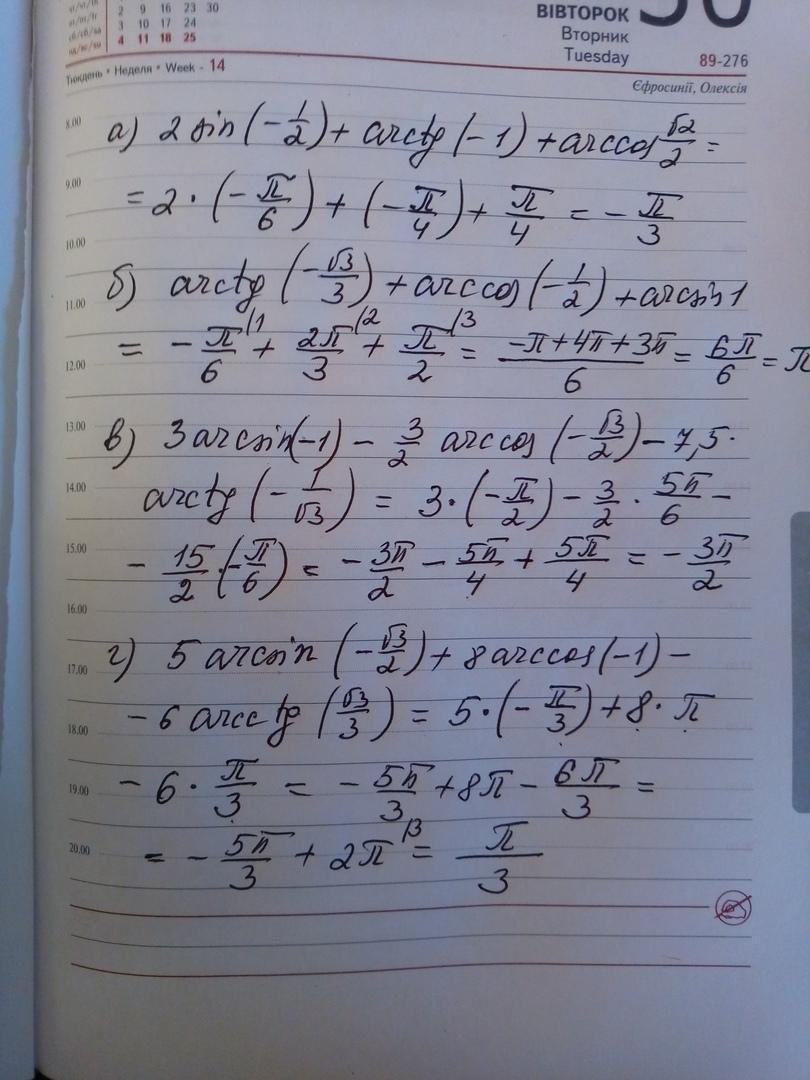 2 9 16 23 30
3 10 17 24
4 11 18 25
ВІВТОРОК
Вторник
Tuesday
89-276
Тиждень • Неделя • Week - 14
Єфросинії, Олексія
8.00
а) 2 sin (-1/2) + arctg (-1) + arccos √2/2 =
9.00
= 2 · (-π/6) + (-π/4) + π/4 = - π/3
10.00
б) arctg (-√3/3) + arccos (-1/2) + arcsin 1
11.00
= - π/6 /1 + 2π/3 /2 + π/2 /3 = (-π+4π+3π)/6 = 6π/6 = π
12.00
13.00
в) 3 arcsin(-1) - 3/2 arccos (-√3/2) - 7,5·
14.00
arctg (-1/√3) = 3·(-π/2) - 3/2 · 5π/6 -
15.00
- 15/2 ·(-π/6) = - 3π/2 - 5π/4 + 5π/4 = - 3π/2
16.00
г) 5 arcsin (-√3/2) + 8 arccos (-1) -
17.00
- 6 arcctg (√3/3) = 5·(-π/3) + 8· π
18.00
- 6 · π/3 = - 5π/3 + 8π - 6π/3 =
19.00
20.00
= - 5π/3 + 2π /3 = π/3